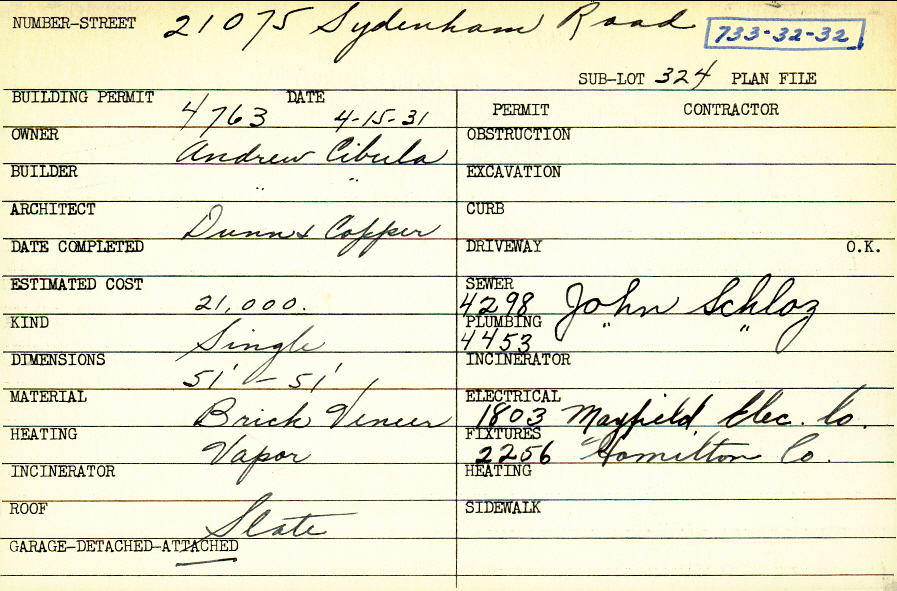 NUMBER-STREET 21075 Sydenham Road 733-32-32
SUB-LOT 324 PLAN FILE
BUILDING PERMIT 4763 DATE 4-15-31
PERMIT CONTRACTOR
OWNER Andrew Cibula
OBSTRUCTION
BUILDER " "
EXCAVATION
ARCHITECT Dunn & Copper
CURB
DATE COMPLETED
DRIVEWAY O.K.
ESTIMATED COST 21,000.
SEWER 4298 John Schloz
KIND Single
PLUMBING 4453 " "
DIMENSIONS 51' - 51'
INCINERATOR
MATERIAL Brick Veneer
ELECTRICAL 1803 Mayfield Elec. Co.
HEATING Vapor
FIXTURES 2256 Hamilton Co.
INCINERATOR
HEATING
ROOF Slate
SIDEWALK
GARAGE-DETACHED-ATTACHED